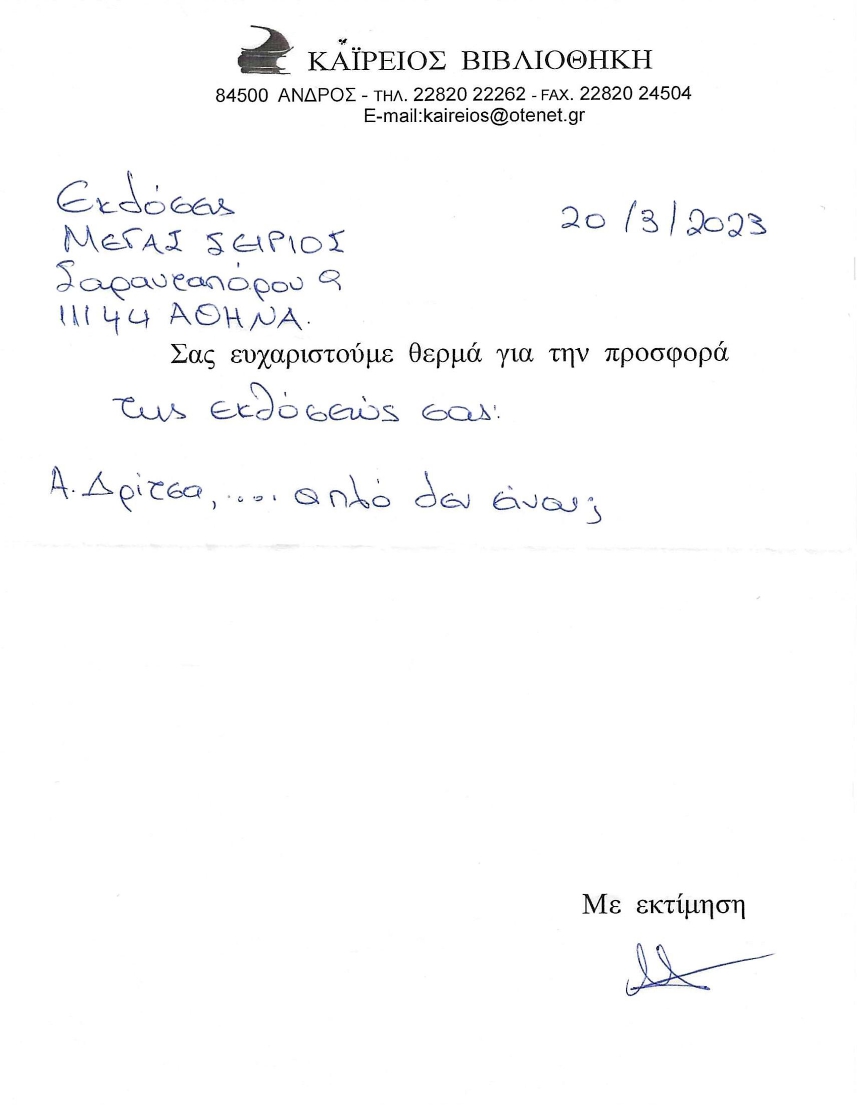 ΚΑΪΡΕΙΟΣ ΒΙΒΛΙΟΘΗΚΗ
84500 ΑΝΔΡΟΣ - ΤΗΛ. 22820 22262 - FAX. 22820 24504
E-mail:kaireios@otenet.gr
Εκδόσεις
20/3/2023
ΜΕΓΑΣ ΣΕΙΡΙΟΣ
Σαρανταπόρου 9
11144 ΑΘΗΝΑ.
Σας ευχαριστούμε θερμά για την προσφορά
της εκδόσεώς σας:
Α. Δρίτσα, .... απλό δεν είναι;
Με εκτίμηση